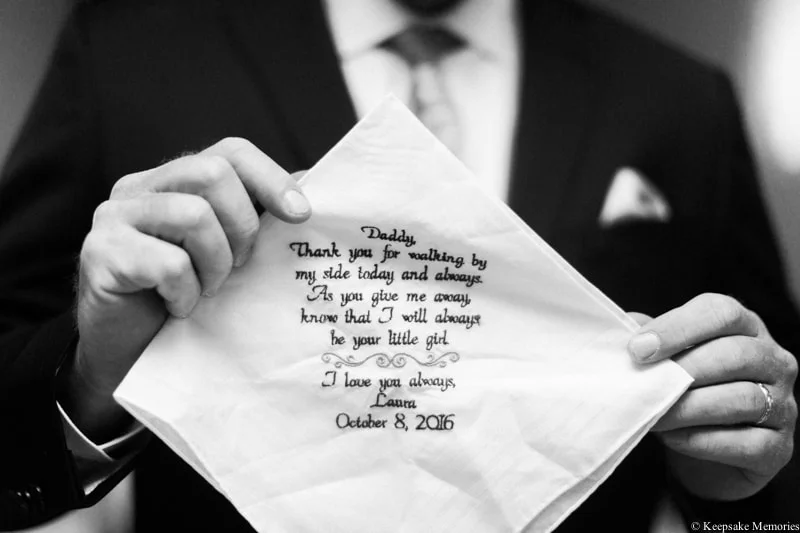 Daddy,
Thank you for walking by
my side today and always.
As you give me away,
know that I will always
be your little girl.
I love you always,
Laura
October 8, 2016
© Keepsake Memories